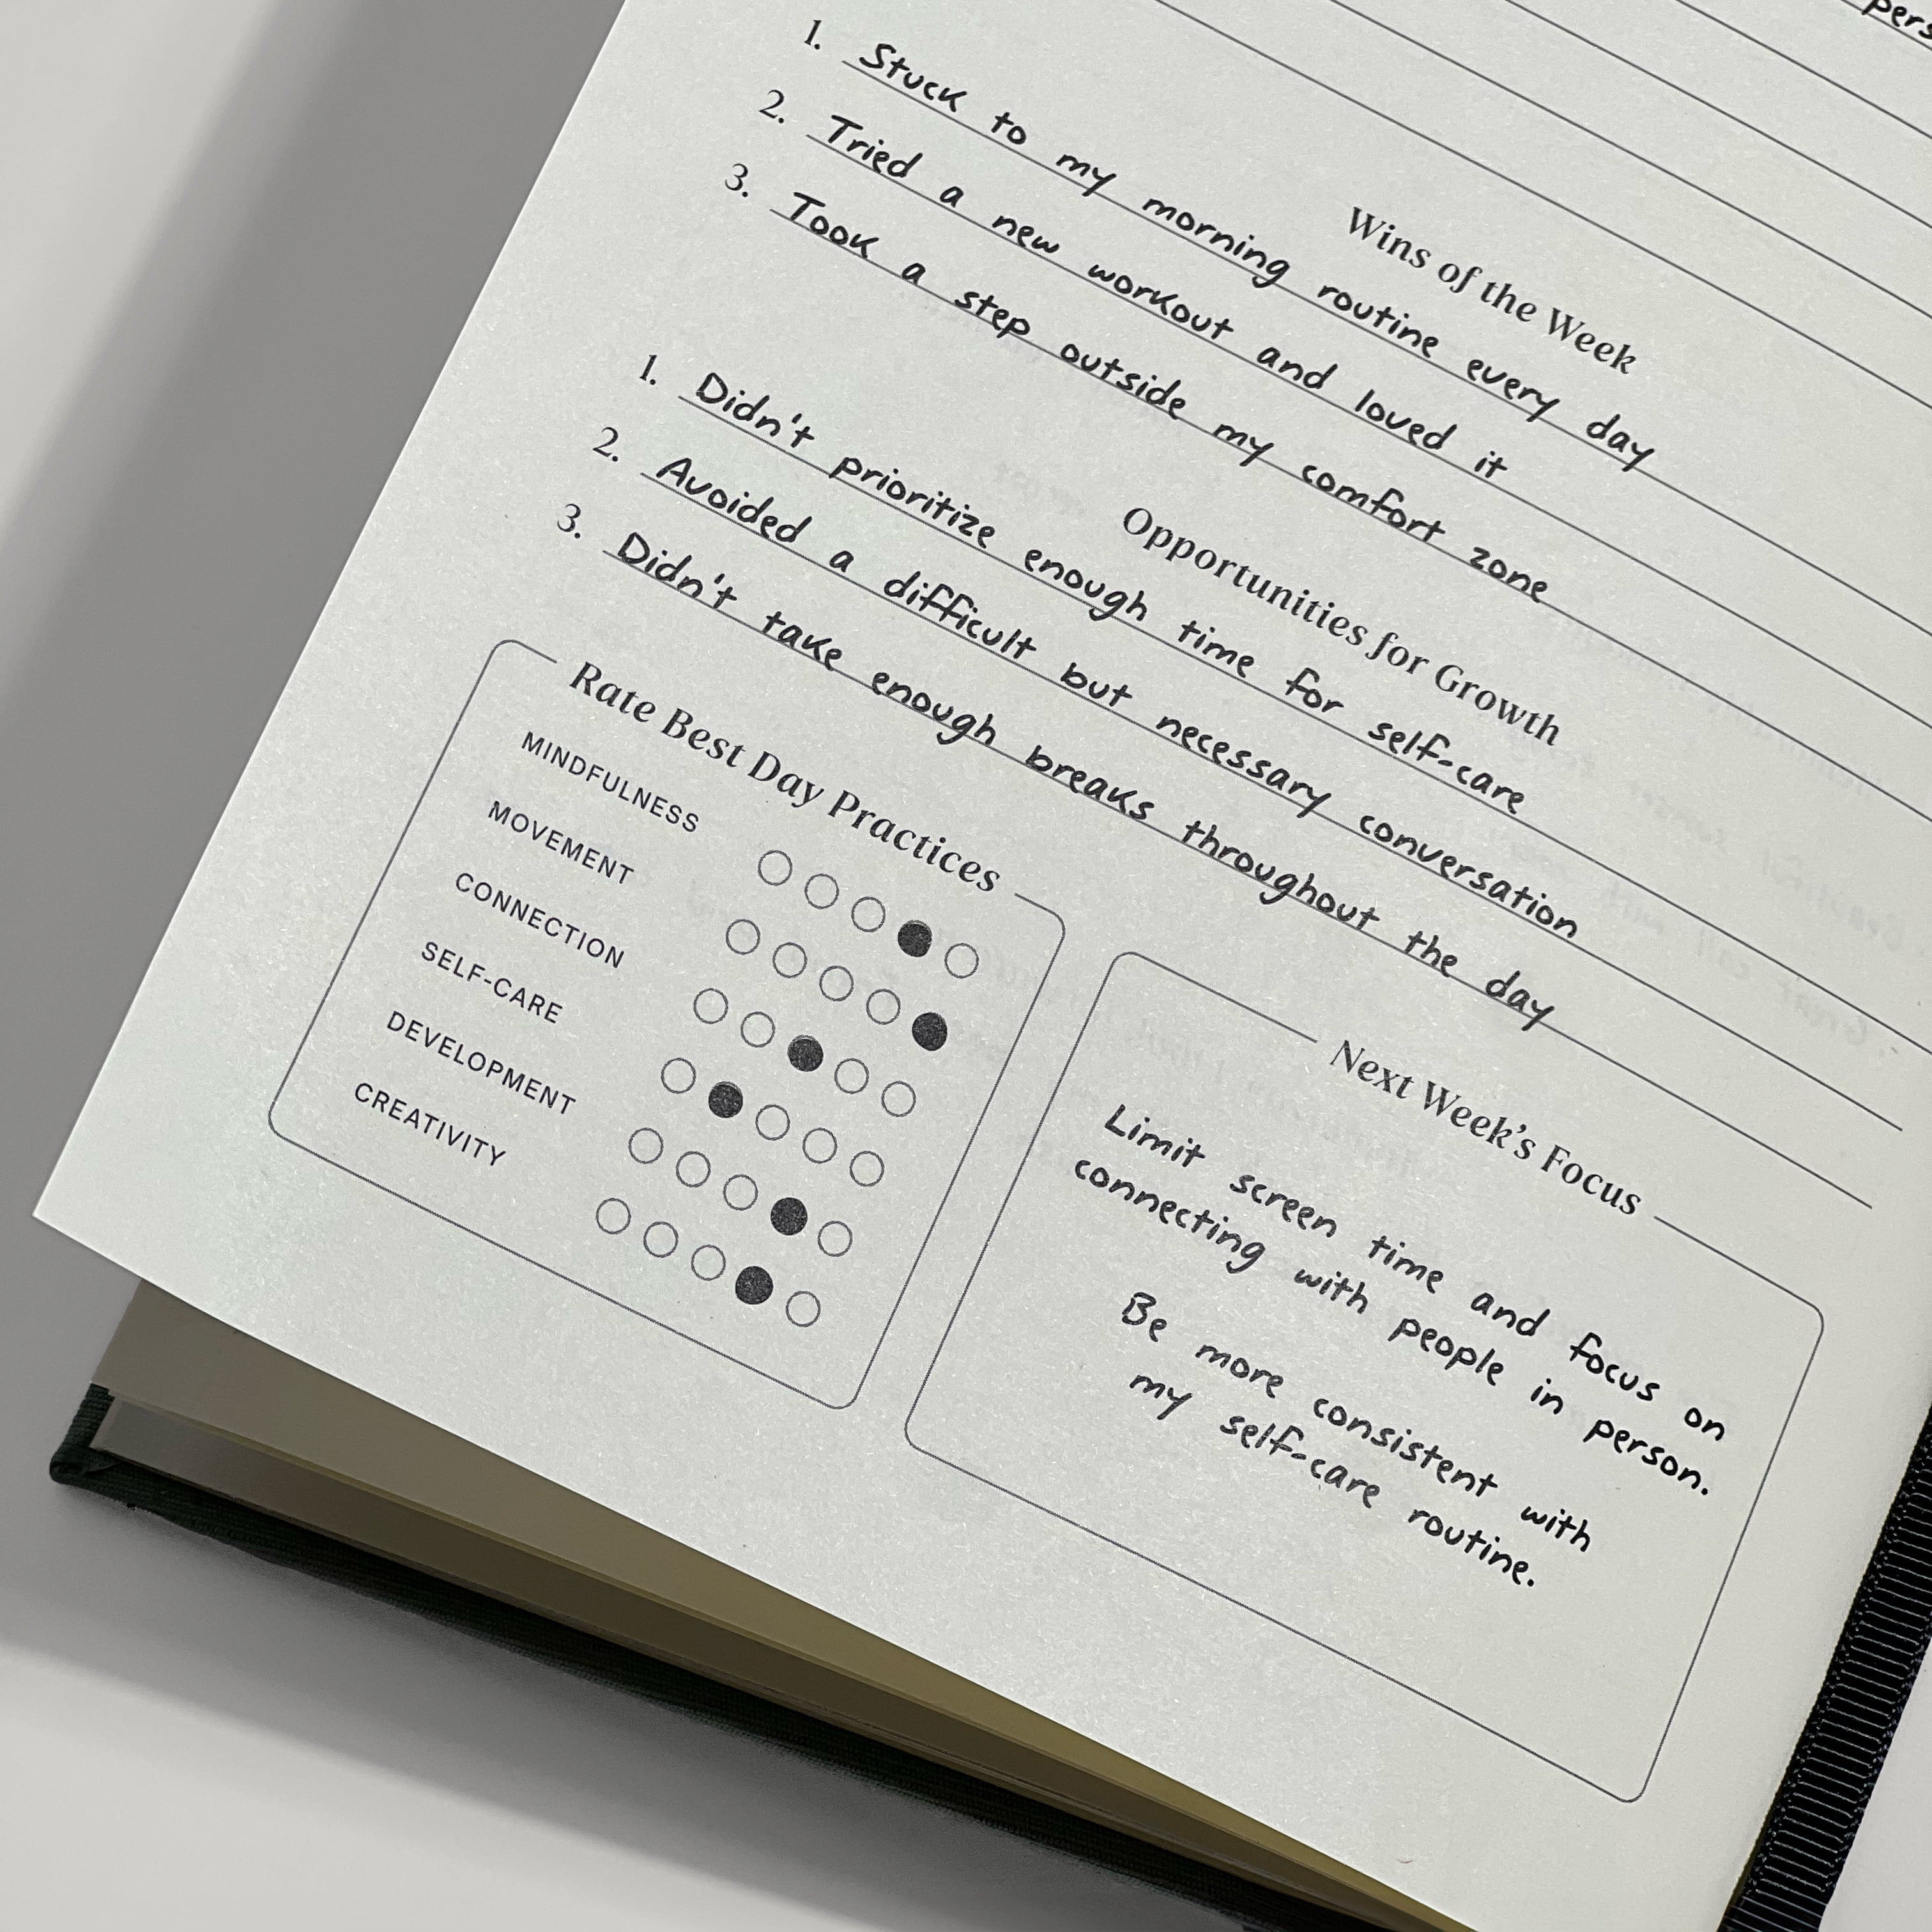 pers
Wins of the Week
1. Stuck to my morning routine every day
2. Tried a new workout and loved it
3. Took a step outside my comfort zone
Opportunities for Growth
1. Didn't prioritize enough time for self-care
2. Avoided a difficult but necessary conversation
3. Didn't take enough breaks throughout the day
Rate Best Day Practices
MINDFULNESS
MOVEMENT
CONNECTION
SELF-CARE
DEVELOPMENT
CREATIVITY
Next Week's Focus
Limit screen time and focus on
connecting with people in person.
Be more consistent with
my self-care routine.